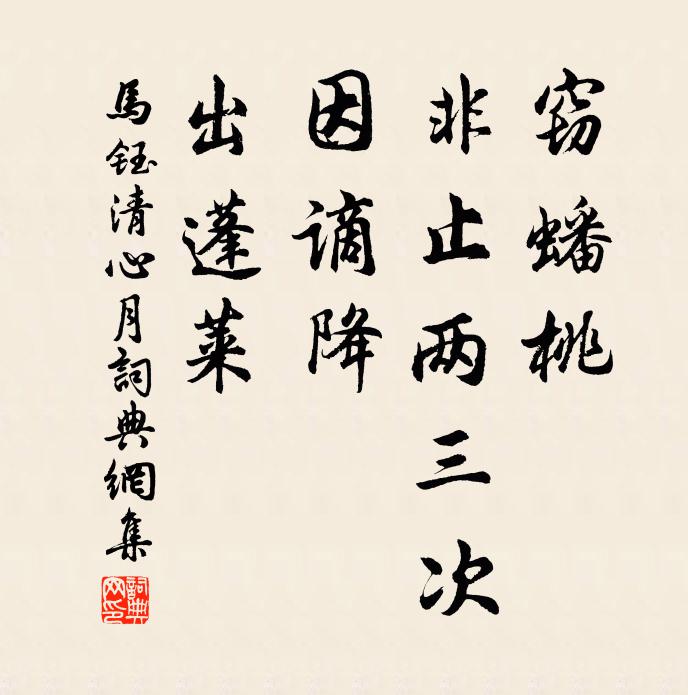 窃蟠桃
非止两三次
因谪降
出蓬莱
馬鈺清心月詞典網集
詞典网印